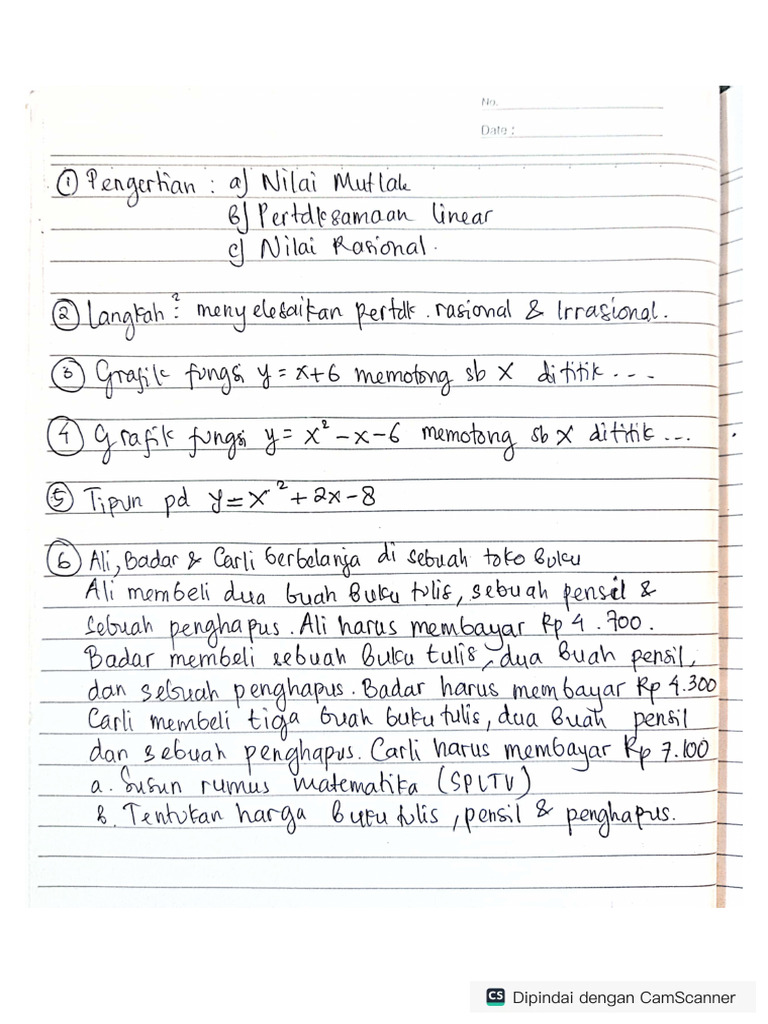 No.
Date :
① Pengertian : a) Nilai Mutlak
b) Pertdksamaan linear
c) Nilai Rasional.
② Langkah² : menyelesaikan pertdk. rasional & Irrasional.
③ Grafik fungsi y = x+6 memotong sb X dititik ...
④ Grafik fungsi y = x² - x - 6 memotong sb X dititik ...
⑤ Tipun pd y = x² + 2x - 8
⑥ Ali, Badar & Carli berbelanja di sebuah toko Buku
Ali membeli dua buah Buku tulis, sebuah pensil &
sebuah penghapus. Ali harus membayar Rp 4.700.
Badar membeli sebuah Buku tulis, dua Buah pensil,
dan sebuah penghapus. Badar harus membayar Rp 4.300
Carli membeli tiga buah buku tulis, dua Buah pensil
dan sebuah penghapus. Carli harus membayar Rp 7.100
a. Susun rumus matematika (SPLTV)
b. Tentukan harga Buku tulis, pensil & penghapus.
CS Dipindai dengan CamScanner